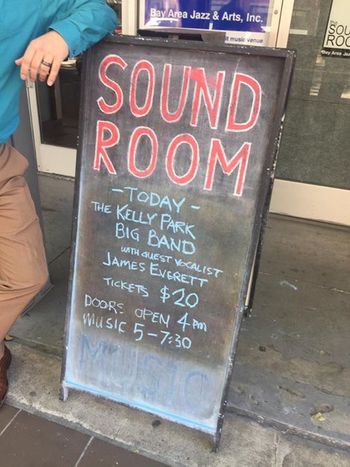 Bay Area Jazz & Arts, Inc.
music venue
SOUND
ROOM
- TODAY -
THE KELLY PARK
BIG BAND
WITH GUEST VOCALIST
JAMES EVERETT
TICKETS $20
DOORS OPEN 4 PM
MUSIC 5-7:30
MUSIC